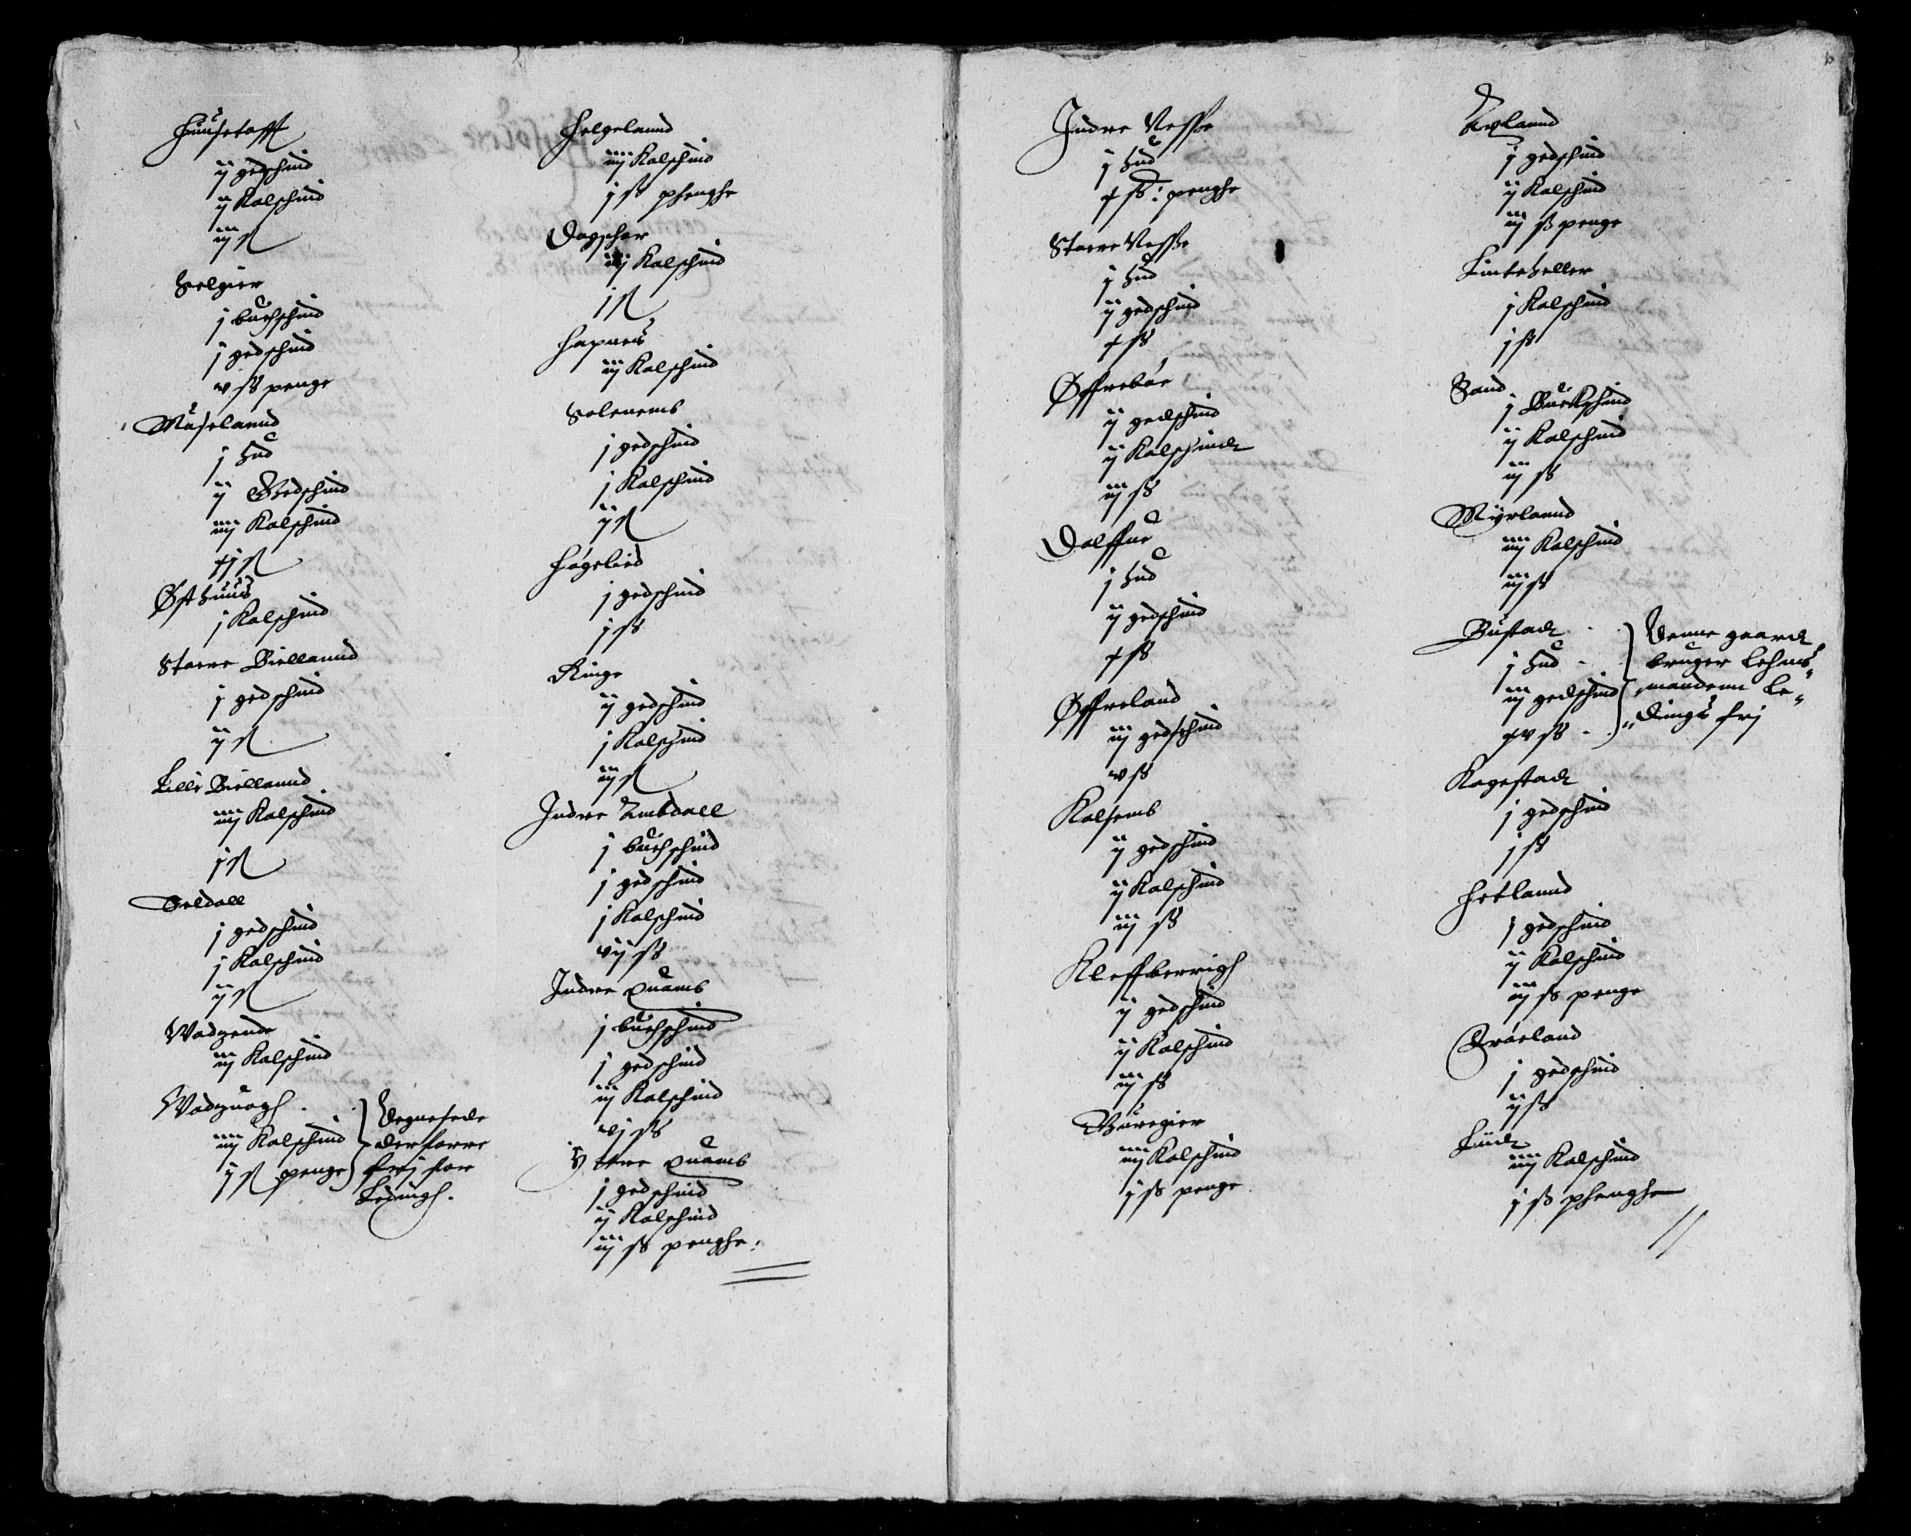 Huusetofft
ij gedschind
ij Kalschind
iij ß
Selgier
j buchschind
j gedschind
v ß penge
Müselannd
j hud
ij Gedschind
iiij Kalschind
xj ß
Østhuus
j Kalschind
Storre Biellannd
j gedschind
ij ß
Lille Biellannd
iiij Kalschind
j ß
Seldall
j gedschind
j Kalschind
ij ß
Wadzende
iij Kalschind
Wadzuogh
iiij Kalschind
j ß penge
Degnesede
derforre
frij for
Leduigh.
Helgelannd
iiij Kalschind
j ß phenghe
Dogschar
iiij Kalschind
j ß
Hapnes
iij Kalschind
Solenems
j gedschind
j Kalschind
ij ß
Høgelied
j gedschind
j ß
Ringe
ij gedschind
j Kalschind
iij ß
Indre Imbdall
j buchschind
j gedschind
j Kalschind
vij ß
Indre Quams
j buchschind
j gedschind
iij Kalschind
vj ß
Yttre Quams
j gedschind
ij Kalschind
iij ß penghe.
Indre Nesse
j hud
x ß: penghe
Storre Nesse
j hud
ij gedschind
x ß
Øffrebøe
ij gedschind
ij Kalschindt
iij ß
Dalffue
j hud
ij gedschind
x ß
Øffreland
iij gedschind
v ß
Kalsems
ij gedschind
ij Kalschind
iij ß
Kleffberrigh
ij gedschind
ij Kalschind
iij ß
Buregier
iiij Kalschind
j ß penge
j gedschind
ij Kalschind
iij ß penge
Lintheller
j Kalschind
j ß
Sand
j Buckschind
ij Kalschind
iij ß
Myrlannd
iiij Kalschind
iij ß
Bustadt
j hud
iij gedschind
xv ß
Denne gaard
bruger Lehns„
mandenn le„
„dings frij
Kagestadt
j gedschind
j ß
Hetlannd
j gedschind
ij Kalschind
iij ß penge
Frøeland
j gedschind
ij ß
Liidt
iiij Kalschind
j ß phenghe